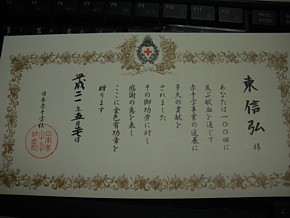 東信弘 様
あなたは一〇〇回に
及ぶ献血を通じて
赤十字事業の進展に
多大の貢献を
されました
その御功労に対し
感謝の意を表し
ここに金色有功章を
贈ります
平成二一年五月
日本赤十字社